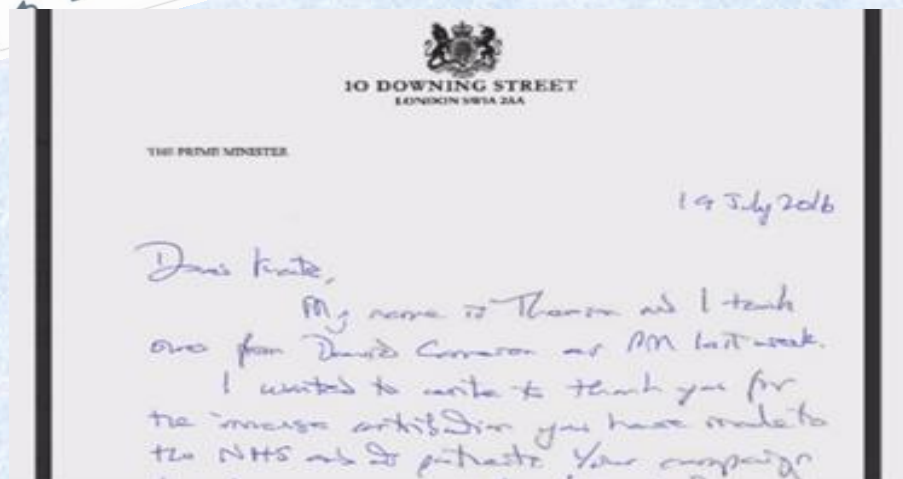 10 DOWNING STREET
LONDON SW1A 2AA
THE PRIME MINISTER
19 July 2016
Dear Kate,
My name is Theresa and I took
over from David Cameron as PM last week.
I wanted to write to thank you for
the immense contribution you have made to
the NHS and its patients. Your campaign